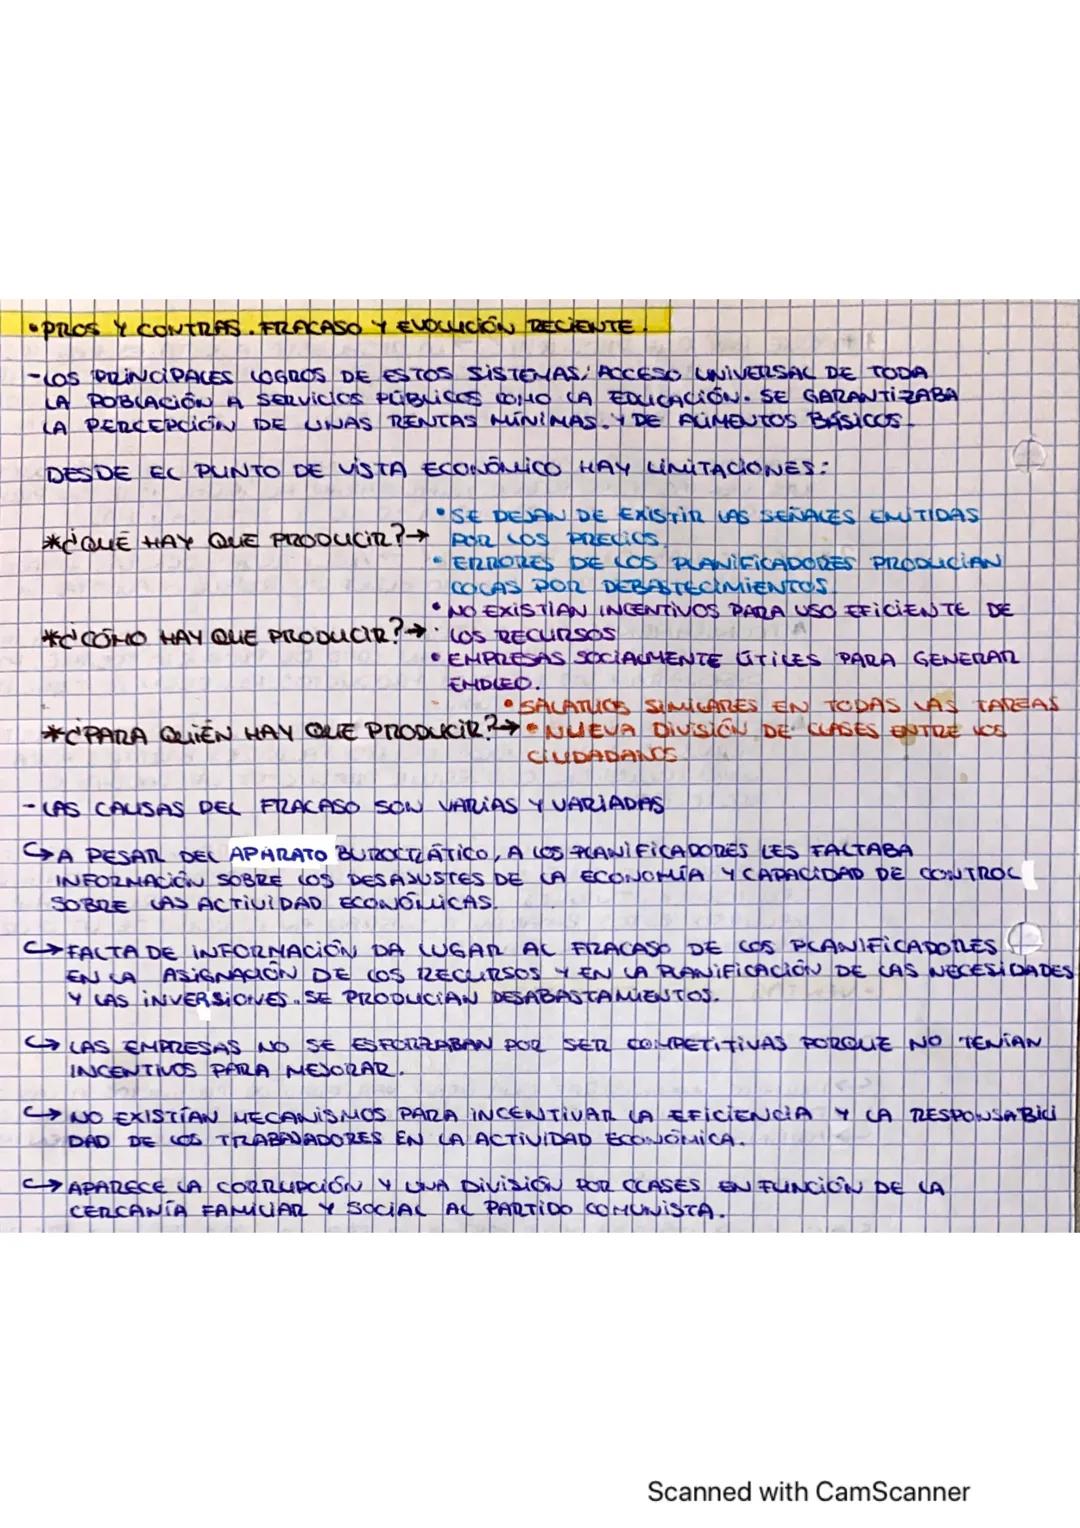 •PROS Y CONTRAS. FRACASO Y EVOLUCIÓN RECIENTE.
-LOS PRINCIPALES LOGROS DE ESTOS SISTEMAS: ACCESO UNIVERSAL DE TODA
LA POBLACIÓN A SERVICIOS PÚBLICOS COMO LA EDUCACIÓN. SE GARANTIZABA
LA PERCEPCIÓN DE UNAS RENTAS MÍNIMAS. Y DE ALIMENTOS BÁSICOS.
DESDE EL PUNTO DE VISTA ECONÓMICO HAY LIMITACIONES:
•SE DEJAN DE EXISTIR LAS SEÑALES EMITIDAS
*¿QUÉ HAY QUE PRODUCIR?→ POR LOS PRECIOS.
•ERRORES DE LOS PLANIFICADORES PRODUCÍAN
COLAS POR DEBASTECIMIENTOS.
•NO EXISTÍAN INCENTIVOS PARA USO EFICIENTE DE
*¿CÓMO HAY QUE PRODUCIR?→ LOS RECURSOS
•EMPRESAS SOCIALMENTE ÚTILES PARA GENERAR
EMPLEO.
•SALARIOS SIMILARES EN TODAS LAS TAREAS
*¿PARA QUIÉN HAY QUE PRODUCIR?→ •NUEVA DIVISIÓN DE CLASES ENTRE LOS
CIUDADANOS.
-LAS CAUSAS DEL FRACASO SON VARIAS Y VARIADAS
↪A PESAR DEL APARATO BUROCRÁTICO, A LOS PLANIFICADORES LES FALTABA
INFORMACIÓN SOBRE LOS DESAJUSTES DE LA ECONOMÍA Y CAPACIDAD DE CONTROL
SOBRE LAS ACTIVIDAD ECONÓMICAS.
↪FALTA DE INFORMACIÓN DA LUGAR AL FRACASO DE LOS PLANIFICADORES
EN LA ASIGNACIÓN DE LOS RECURSOS Y EN LA PLANIFICACIÓN DE LAS NECESIDADES
Y LAS INVERSIONES. SE PRODUCÍAN DESABASTAMIENTOS.
↪LAS EMPRESAS NO SE ESFORZABAN POR SER COMPETITIVAS PORQUE NO TENÍAN
INCENTIVOS PARA MEJORAR.
↪NO EXISTÍAN MECANISMOS PARA INCENTIVAR LA EFICIENCIA Y LA RESPONSABILI
DAD DE LOS TRABAJADORES EN LA ACTIVIDAD ECONÓMICA.
↪APARECE LA CORRUPCIÓN Y UNA DIVISIÓN POR CLASES EN FUNCIÓN DE LA
CERCANÍA FAMILIAR Y SOCIAL AL PARTIDO COMUNISTA.
Scanned with CamScanner